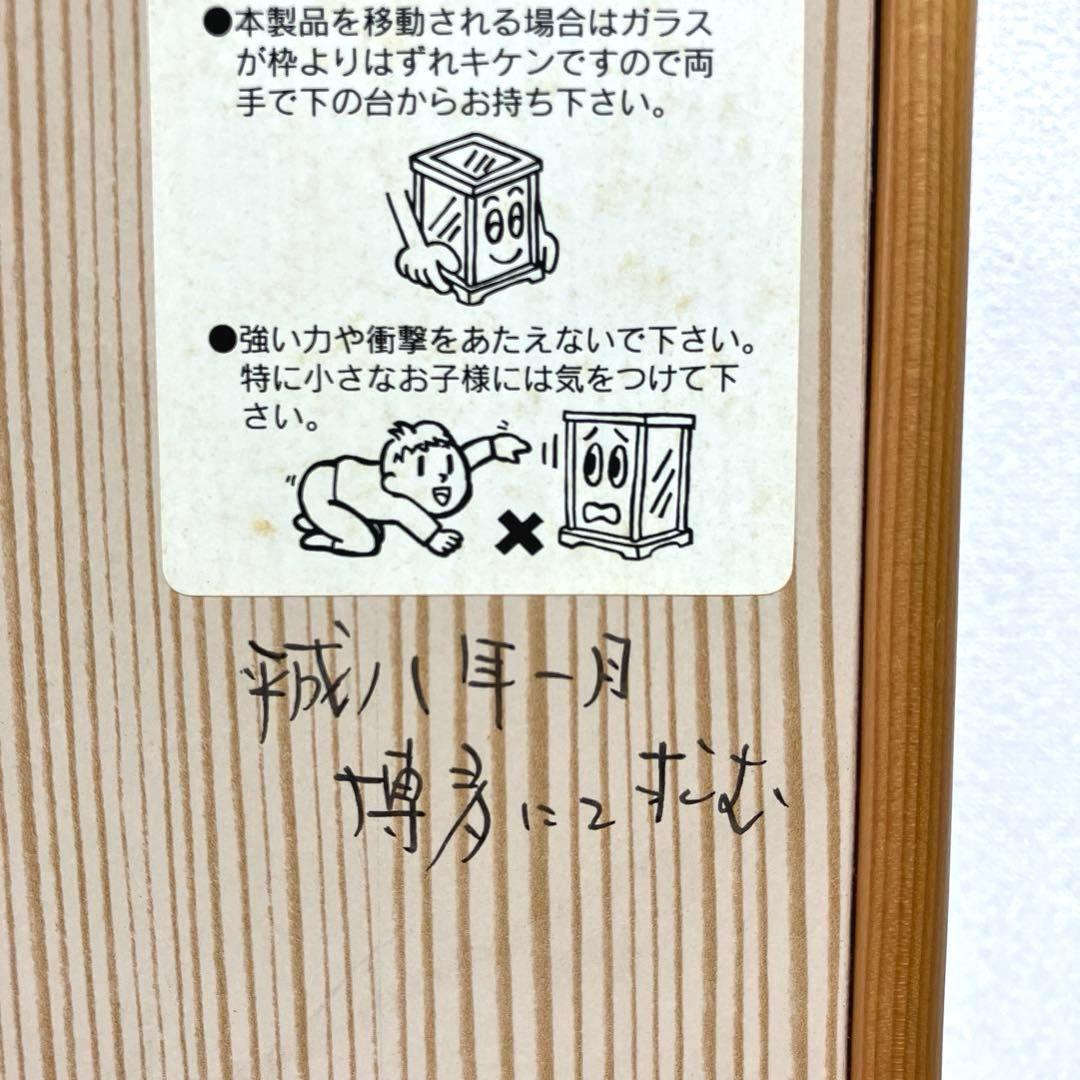 ●本製品を移動される場合はガラス
が枠よりはずれキケンですので両
手で下の台からお持ち下さい。
●強い力や衝撃をあたえないで下さい。
特に小さなお子様には気をつけて下
さい。
平成八年一月
博多にて求む